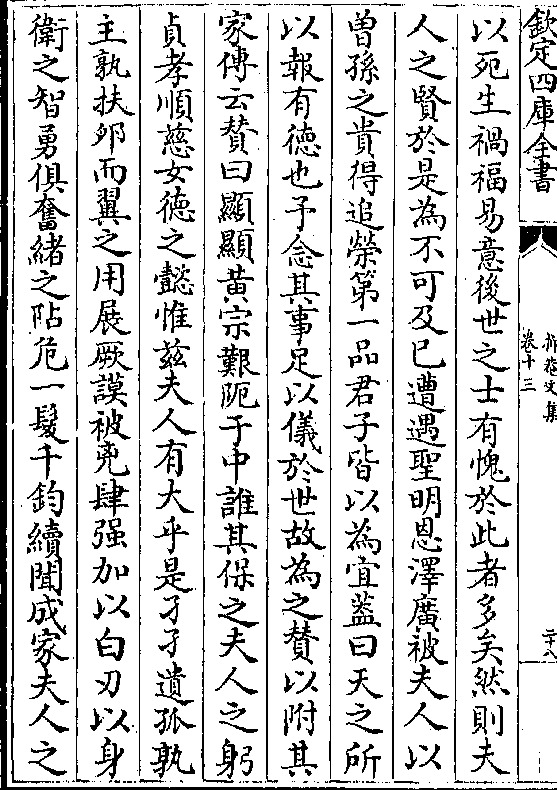 欽定四庫全書
卷十三
二十八
以死生禍福易意後世之士有愧於此者多矣然則夫
人之賢於是為不可及已遭遇聖明恩澤廣被夫人以
曽孫之貴得追榮第一品君子皆以為宜葢曰天之所
以報有德也予念其事足以儀於世故為之賛以附其
家傳云賛曰顯顯黄宗艱阨于中誰其保之夫人之躬
貞孝順慈女徳之懿惟兹夫人有大乎是孑孑遺孤孰
主孰扶夘而翼之用展厥謨被兇肆强加以白刃以身
衛之智勇俱奮緒之阽危一髮千鈞續聞成家夫人之